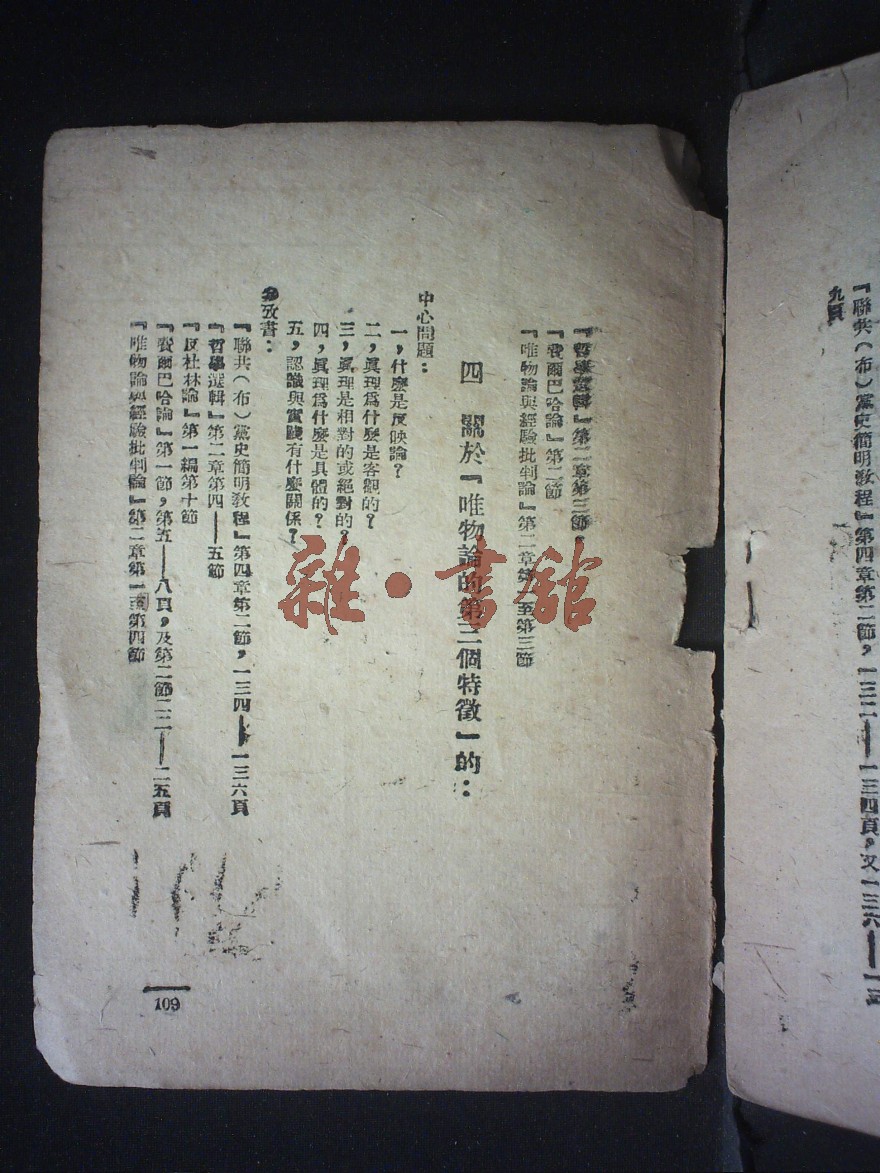 『聯共（布）黨史簡明教程』第四章第二節，一三二——一三四頁，又一三六——一三
九頁
『哲學選輯』第二章第三節。
『費爾巴哈論』第二節
『唯物論與經驗批判論』第二章第 至第三節
四　關於『唯物論的第三個特徵』的：
中心問題：
一，什麼是反映論？
二，眞理爲什麼是客觀的？
三，眞理是相對的或絕對的？
四，眞理爲什麼是具體的？
五，認識與實踐有什麼關係？
參攷書：
『聯共（布）黨史簡明教程』第四章第二節，一三四——一三六頁
『哲學選輯』第二章第四——五節
『反杜林論』第一編第十節
『費爾巴哈論』第一節，第五——八頁，及第二節二二——二五頁
『唯物論與經驗批判論』第二章第一至第四節
109
雜·書舘